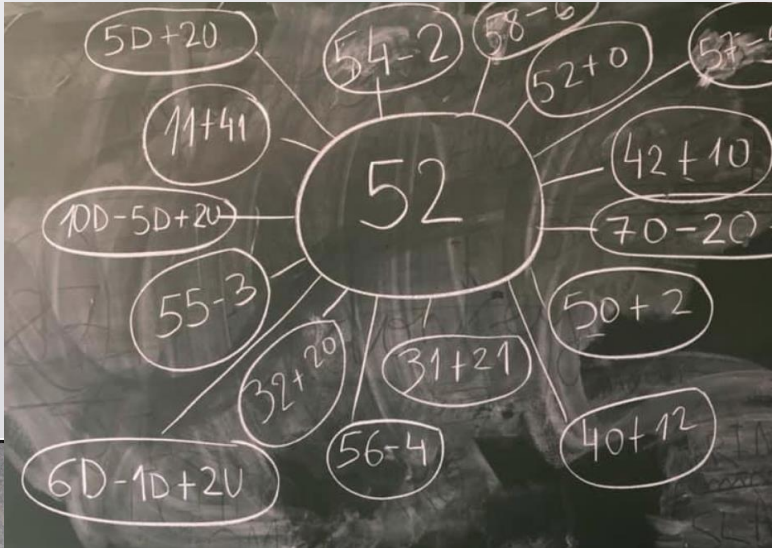 5D+2U
54-2
58-6
52+0
57-
11+41
52
42+10
10D-5D+2U
70-20
55-3
50+2
32+20
31+21
40+12
56-4
6D-1D+2U